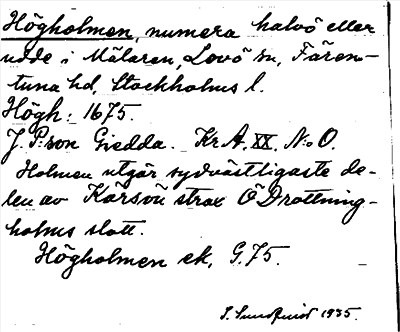 Högholmen, numera halvö eller
udde i Mälaren, Lovö sn, Fären-
tuna hd, Stockholms l.
Högh: 1675.
J. P:son Giedda. Kr A. XX. N:o O.
Holmen utgör sydvästligaste de-
len av Kärsön strax Ö Drottning-
holms slott.
Högholmen ek, G. 75.
S. Sundquist 1935.